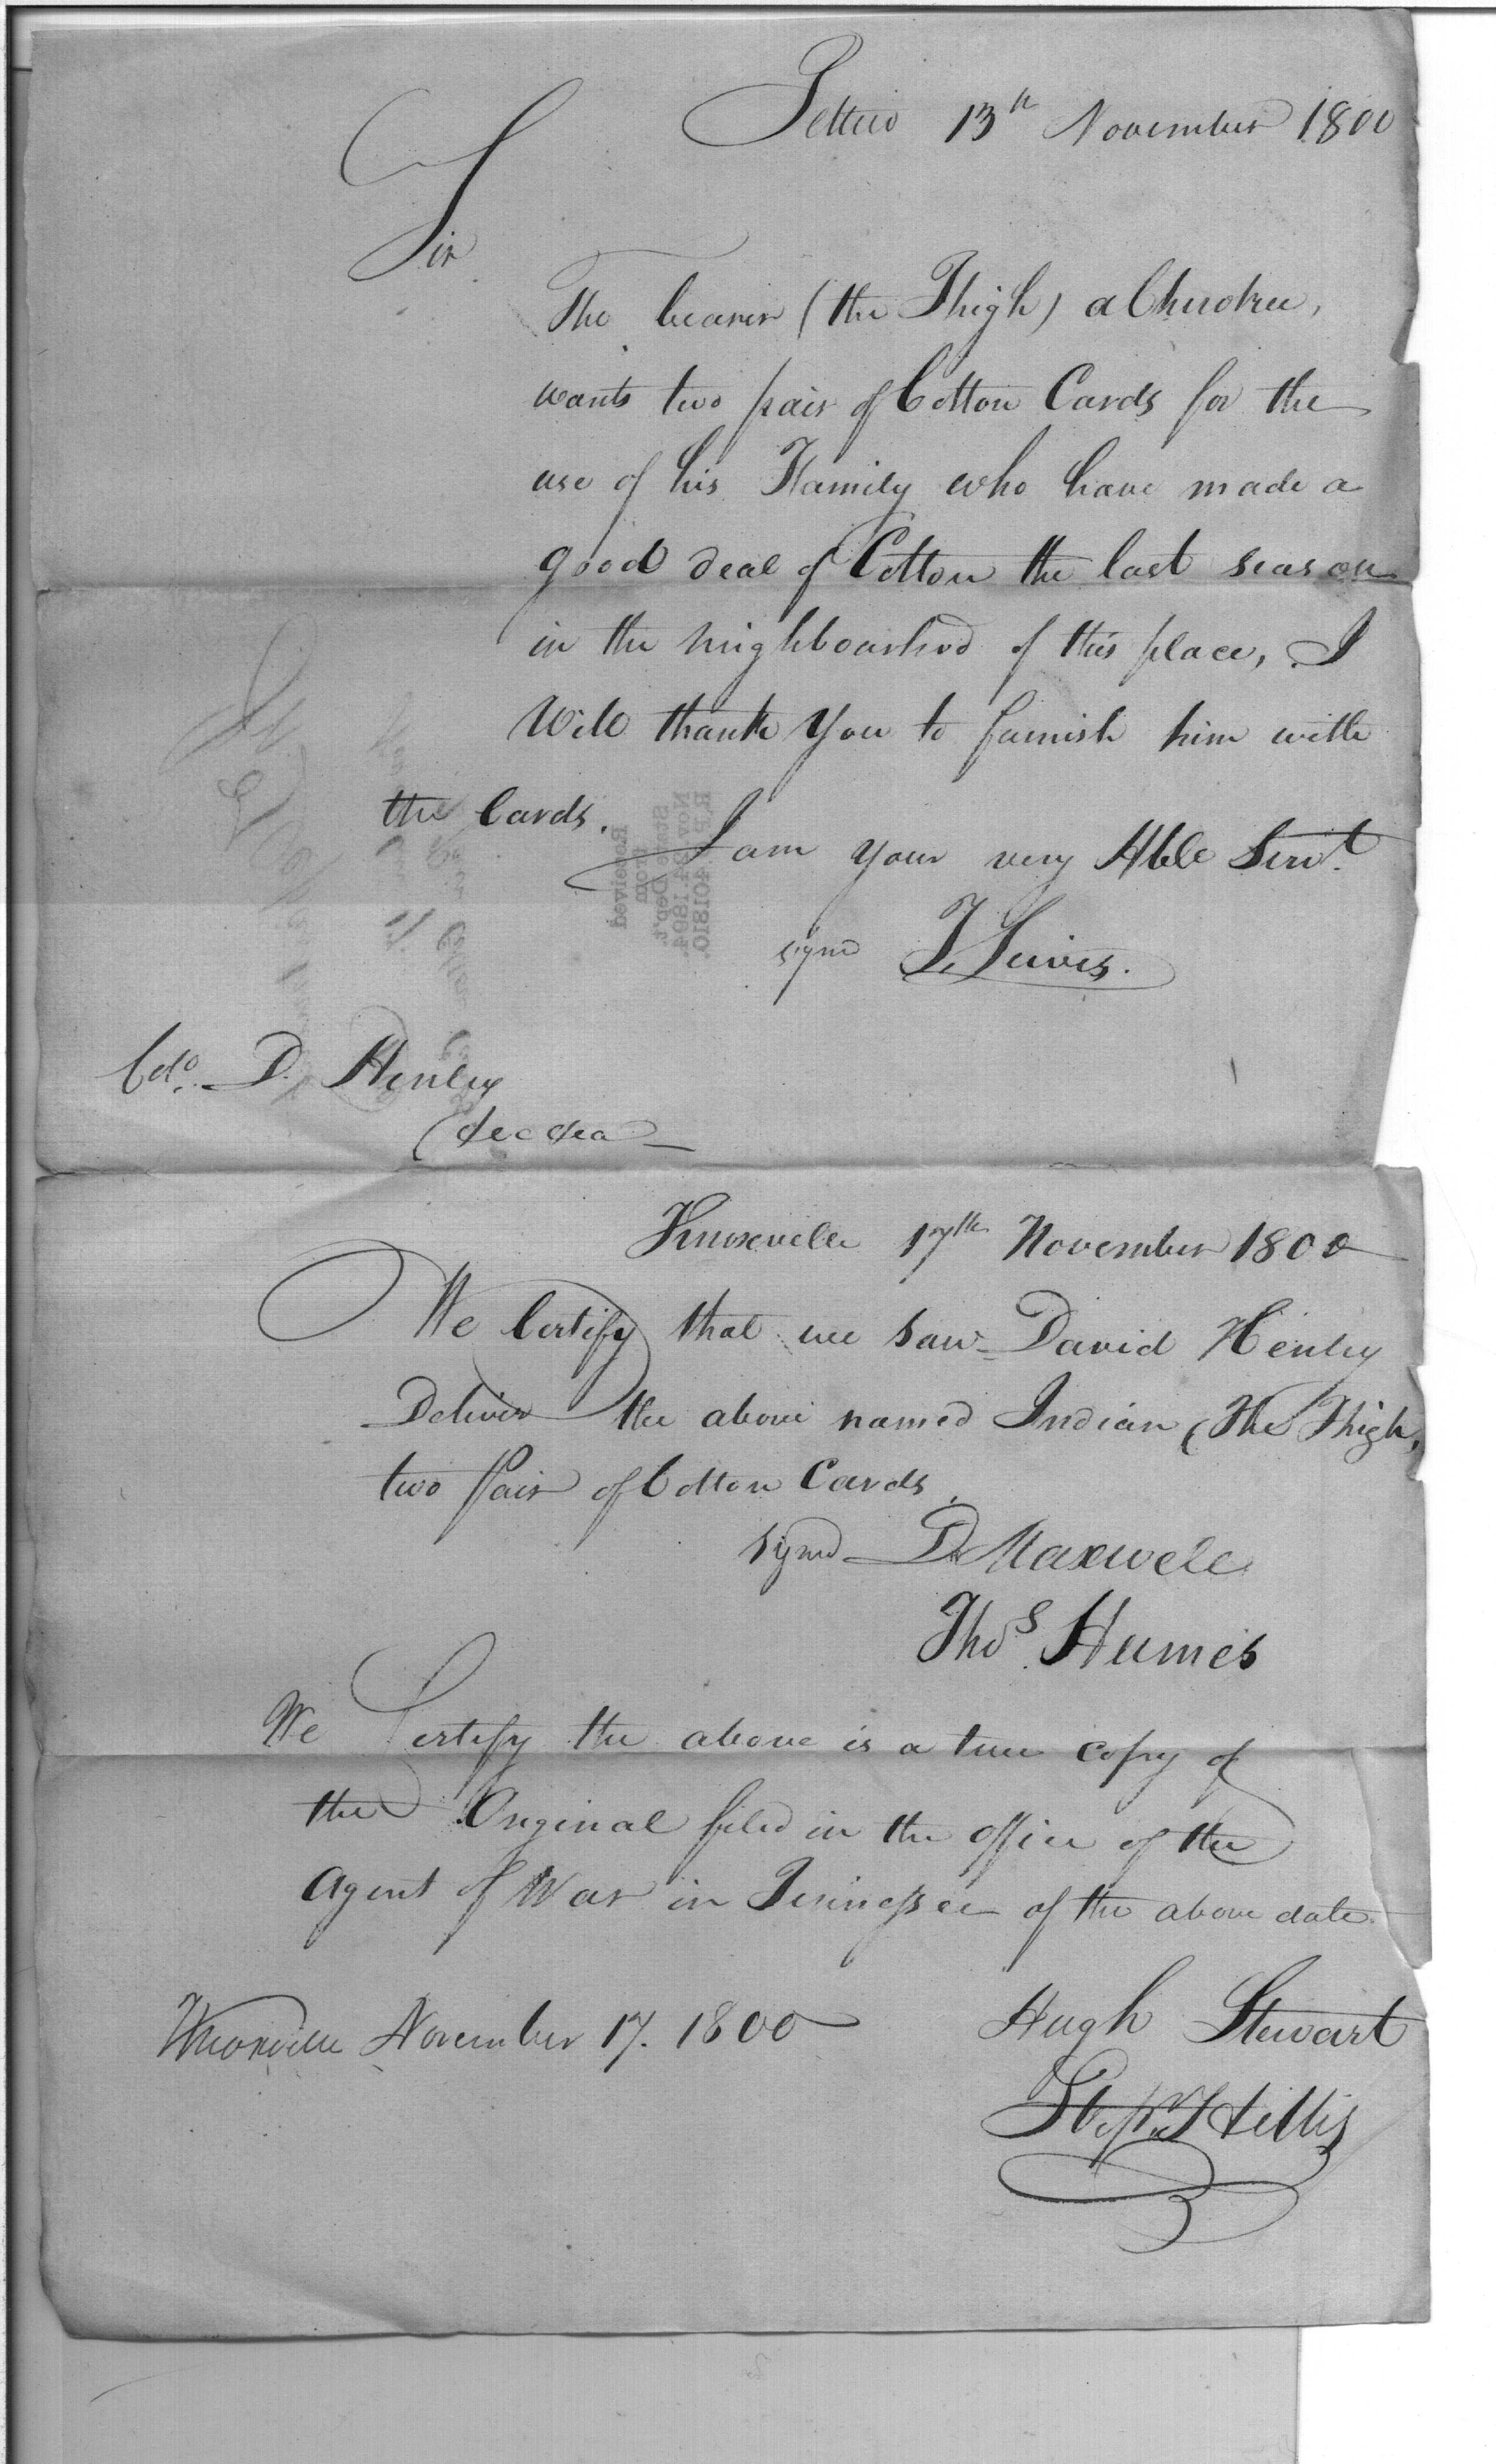 Tellico 13th November 1800
Sir
The bearer (the Thigh) a Cherokee,
wants two pair of Cotton Cards for the
use of his Family who have made a
good deal of Cotton the last season
in the neighbourhood of this place, I
Will thank You to furnish him with
the Cards.
I am your very Hble Servt.
signd T. Lewis.
Colo. D. Henley
Knoxville 17th November 1800
We Certify that we saw David Henley
Deliver the above named Indian (The Thigh,
two Pair of Cotton Cards.
signd D Maxwell
Thos. Humes
We Certify the above is a true copy of
the Original filed in the office of the
Agent of War in Tennessee of the above date.
Knoxville November 17. 1800
Hugh Stewart
Stepn. Hillis
R.P. 401810.
Nov. 24. 1894.
State Dep't.
from
Received